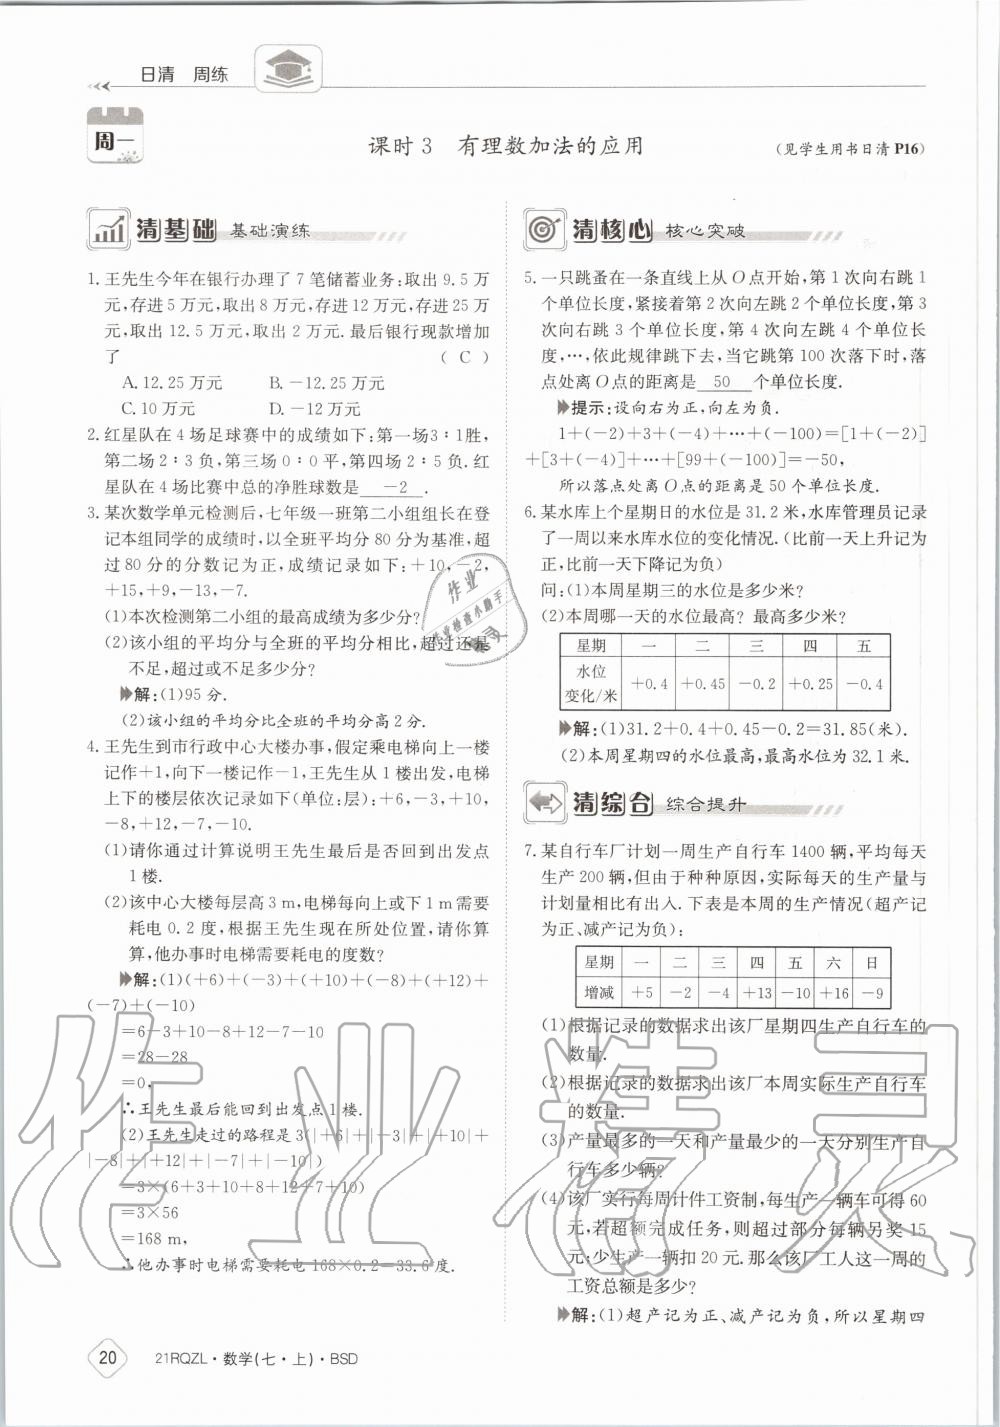 日清 周练
周一
课时3 有理数加法的应用
(见学生用书日清P16)
清基础 基础演练
1. 王先生今年在银行办理了7笔储蓄业务:取出9.5万
元,存进5万元,取出8万元,存进12万元,存进25万
元,取出12.5万元,取出2万元.最后银行现款增加
了 ( C )
A. 12.25万元 B. -12.25万元
C. 10万元 D. -12万元
2. 红星队在4场足球赛中的成绩如下:第一场3∶1胜,
第二场2∶3负,第三场0∶0平,第四场2∶5负.红
星队在4场比赛中总的净胜球数是 -2 .
3. 某次数学单元检测后,七年级一班第二小组组长在登
记本组同学的成绩时,以全班平均分80分为基准,超
过80分的分数记为正,成绩记录如下:+10,-2,
+15,+9,-13,-7.
(1)本次检测第二小组的最高成绩为多少分?
(2)该小组的平均分与全班的平均分相比,超过还是
不足,超过或不足多少分?
解:(1)95分.
(2)该小组的平均分比全班的平均分高2分.
4. 王先生到市行政中心大楼办事,假定乘电梯向上一楼
记作+1,向下一楼记作-1,王先生从1楼出发,电梯
上下的楼层依次记录如下(单位:层):+6,-3,+10,
-8,+12,-7,-10.
(1)请你通过计算说明王先生最后是否回到出发点
1楼.
(2)该中心大楼每层高3 m,电梯每向上或下1 m需要
耗电0.2度,根据王先生现在所处位置,请你算
算,他办事时电梯需要耗电的度数?
解:(1)(+6)+(-3)+(+10)+(-8)+(+12)+
(-7)+(-10)
=6-3+10-8+12-7-10
=28-28
=0,
∴王先生最后能回到出发点1楼.
(2)王先生走过的路程是3(|+6|+|-3|+|+10|+
|-8|+|+12|+|-7|+|-10|)
=3×(6+3+10+8+12+7+10)
=3×56
=168 m,
∴他办事时电梯需要耗电168×0.2=33.6度.
清核心 核心突破
5. 一只跳蚤在一条直线上从O点开始,第1次向右跳1
个单位长度,紧接着第2次向左跳2个单位长度,第3
次向右跳3个单位长度,第4次向左跳4个单位长
度,…,依此规律跳下去,当它跳第100次落下时,落
点处离O点的距离是 50 个单位长度.
提示:设向右为正,向左为负.
1+(-2)+3+(-4)+…+(-100)=[1+(-2)]
+[3+(-4)]+…+[99+(-100)]=-50,
所以落点处离O点的距离是50个单位长度.
6. 某水库上个星期日的水位是31.2米,水库管理员记录
了一周以来水库水位的变化情况.(比前一天上升记为
正,比前一天下降记为负)
问:(1)本周星期三的水位是多少米?
(2)本周哪一天的水位最高?最高多少米?
星期 一 二 三 四 五
水位
变化/米 +0.4 +0.45 -0.2 +0.25 -0.4
解:(1)31.2+0.4+0.45-0.2=31.85(米).
(2)本周星期四的水位最高,最高水位为32.1米.
清综合 综合提升
7. 某自行车厂计划一周生产自行车1400辆,平均每天
生产200辆,但由于种种原因,实际每天的生产量与
计划量相比有出入.下表是本周的生产情况(超产记
为正、减产记为负):
星期 一 二 三 四 五 六 日
增减 +5 -2 -4 +13 -10 +16 -9
(1)根据记录的数据求出该厂星期四生产自行车的
数量.
(2)根据记录的数据求出该厂本周实际生产自行车
的数量.
(3)产量最多的一天和产量最少的一大分别生产自
行车多少辆?
(4)该厂实行每周计件工资制,每生产一辆车可得60
元,若超额完成任务,则超过部分每辆另奖15
元;少生产一辆扣20元.那么该厂工人这一周的
工资总额是多少?
解:(1)超产记为正、减产记为负,所以星期四
20 21RQZL·数学(七·上)·BSD
作业精灵
作业
作业检查小助手
精灵